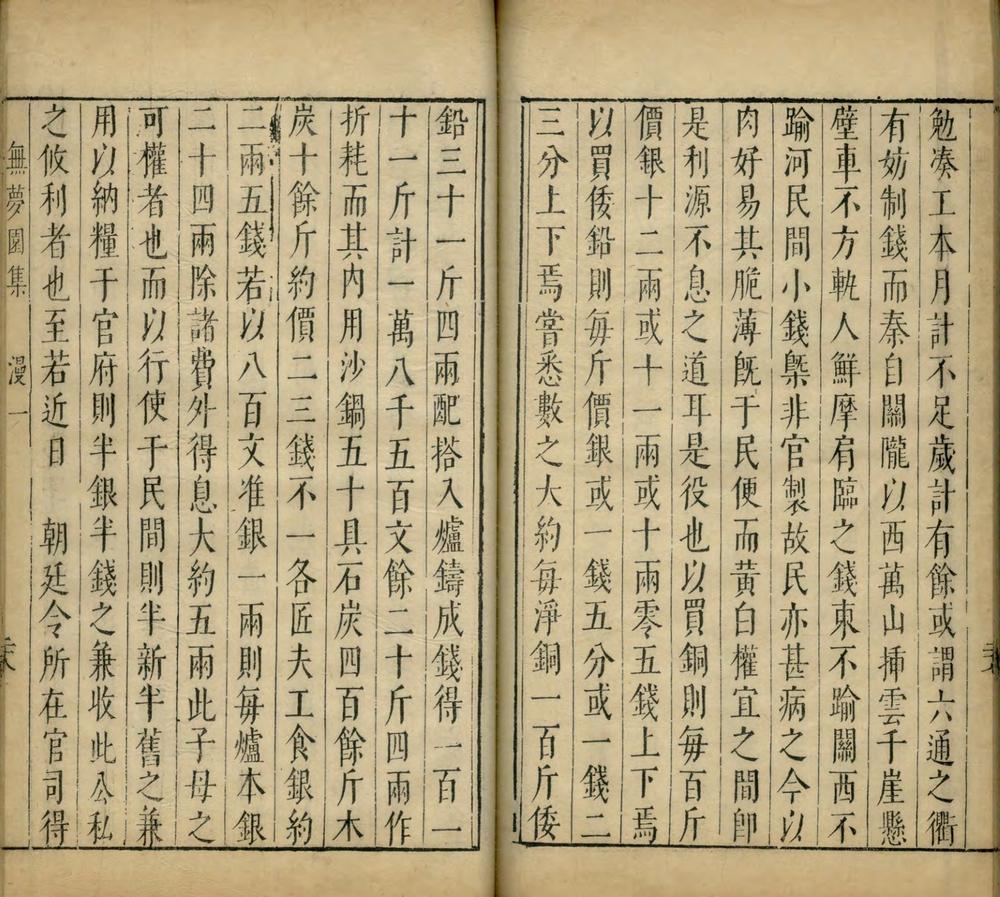 勉湊工本月計不足歲計有餘或謂六通之衢
有妨制錢而秦自關隴以西萬山揷雲千崖懸
壁車不方軌人鮮摩肩臨之錢東不踰關西不
踰河民間小錢槩非官製故民亦甚病之今以
肉好易其脆薄旣于民便而黃白權宜之間卽
是利源不息之道耳是役也以買銅則每百斤
價銀十二兩或十一兩或十兩零五錢上下焉
以買倭鉛則每斤價銀或一錢五分或一錢二
三分上下焉嘗悉數之大約每淨銅一百斤倭
鉛三十一斤四兩配搭入爐鑄成錢得一百一
十一斤計一萬八千五百文餘二十斤四兩作
折耗而其内用沙鍋五十具石炭四百餘斤木
炭十餘斤約價二三錢不一各匠夫工食銀約
二兩五錢若以八百文准銀一兩則每爐本銀
二十四兩除諸費外得息大約五兩此子母之
可權者也而以行使于民間則半新半舊之兼
用以納糧于官府則半銀半錢之兼收此公私
之攸利者也至若近日 朝廷令所在官司得
無夢園集 漫一